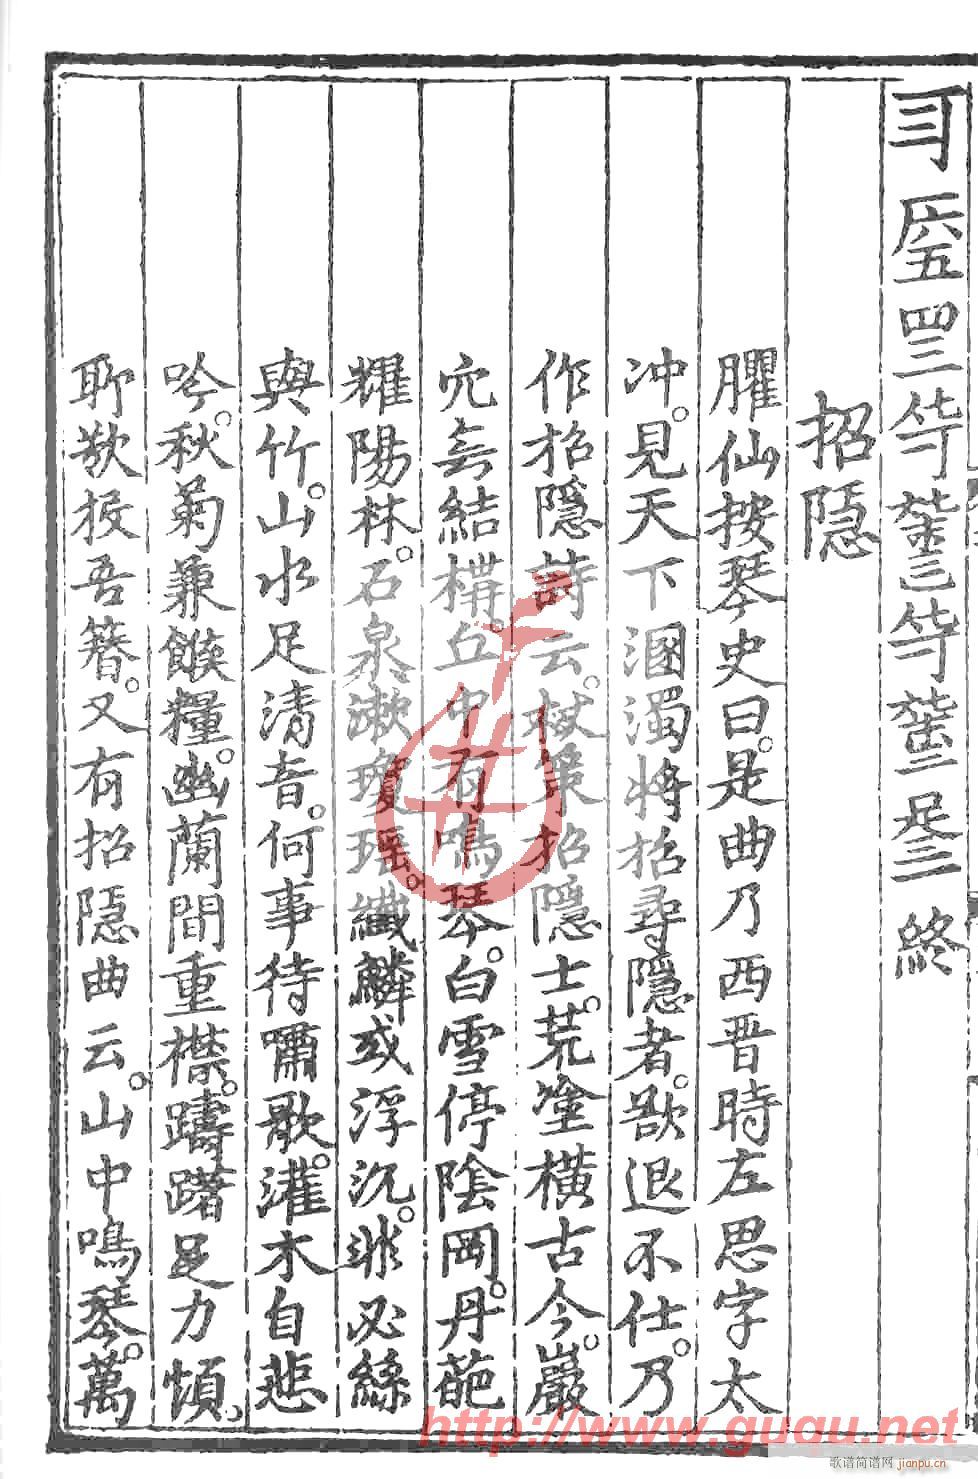 終
招隱
臞仙按琴史曰是曲乃西晋時左思字太
冲見天下溷濁將招尋隱者欲退不仕乃
作招隱詩云杖策招隱士荒塗橫古今巖
穴無結構丘中有鳴琴白雪停陰岡丹葩
耀陽林石泉漱瓊瑶纖鱗或浮沉非必絲
與竹山水足清音何事待嘯歌灌木自悲
吟秋菊兼餱糧幽蘭間重襟躊躇足力煩
聊欲投吾簪又有招隱曲云山中鳴琴萬
www.guqu.net
歌谱简谱网 jianpu.cn